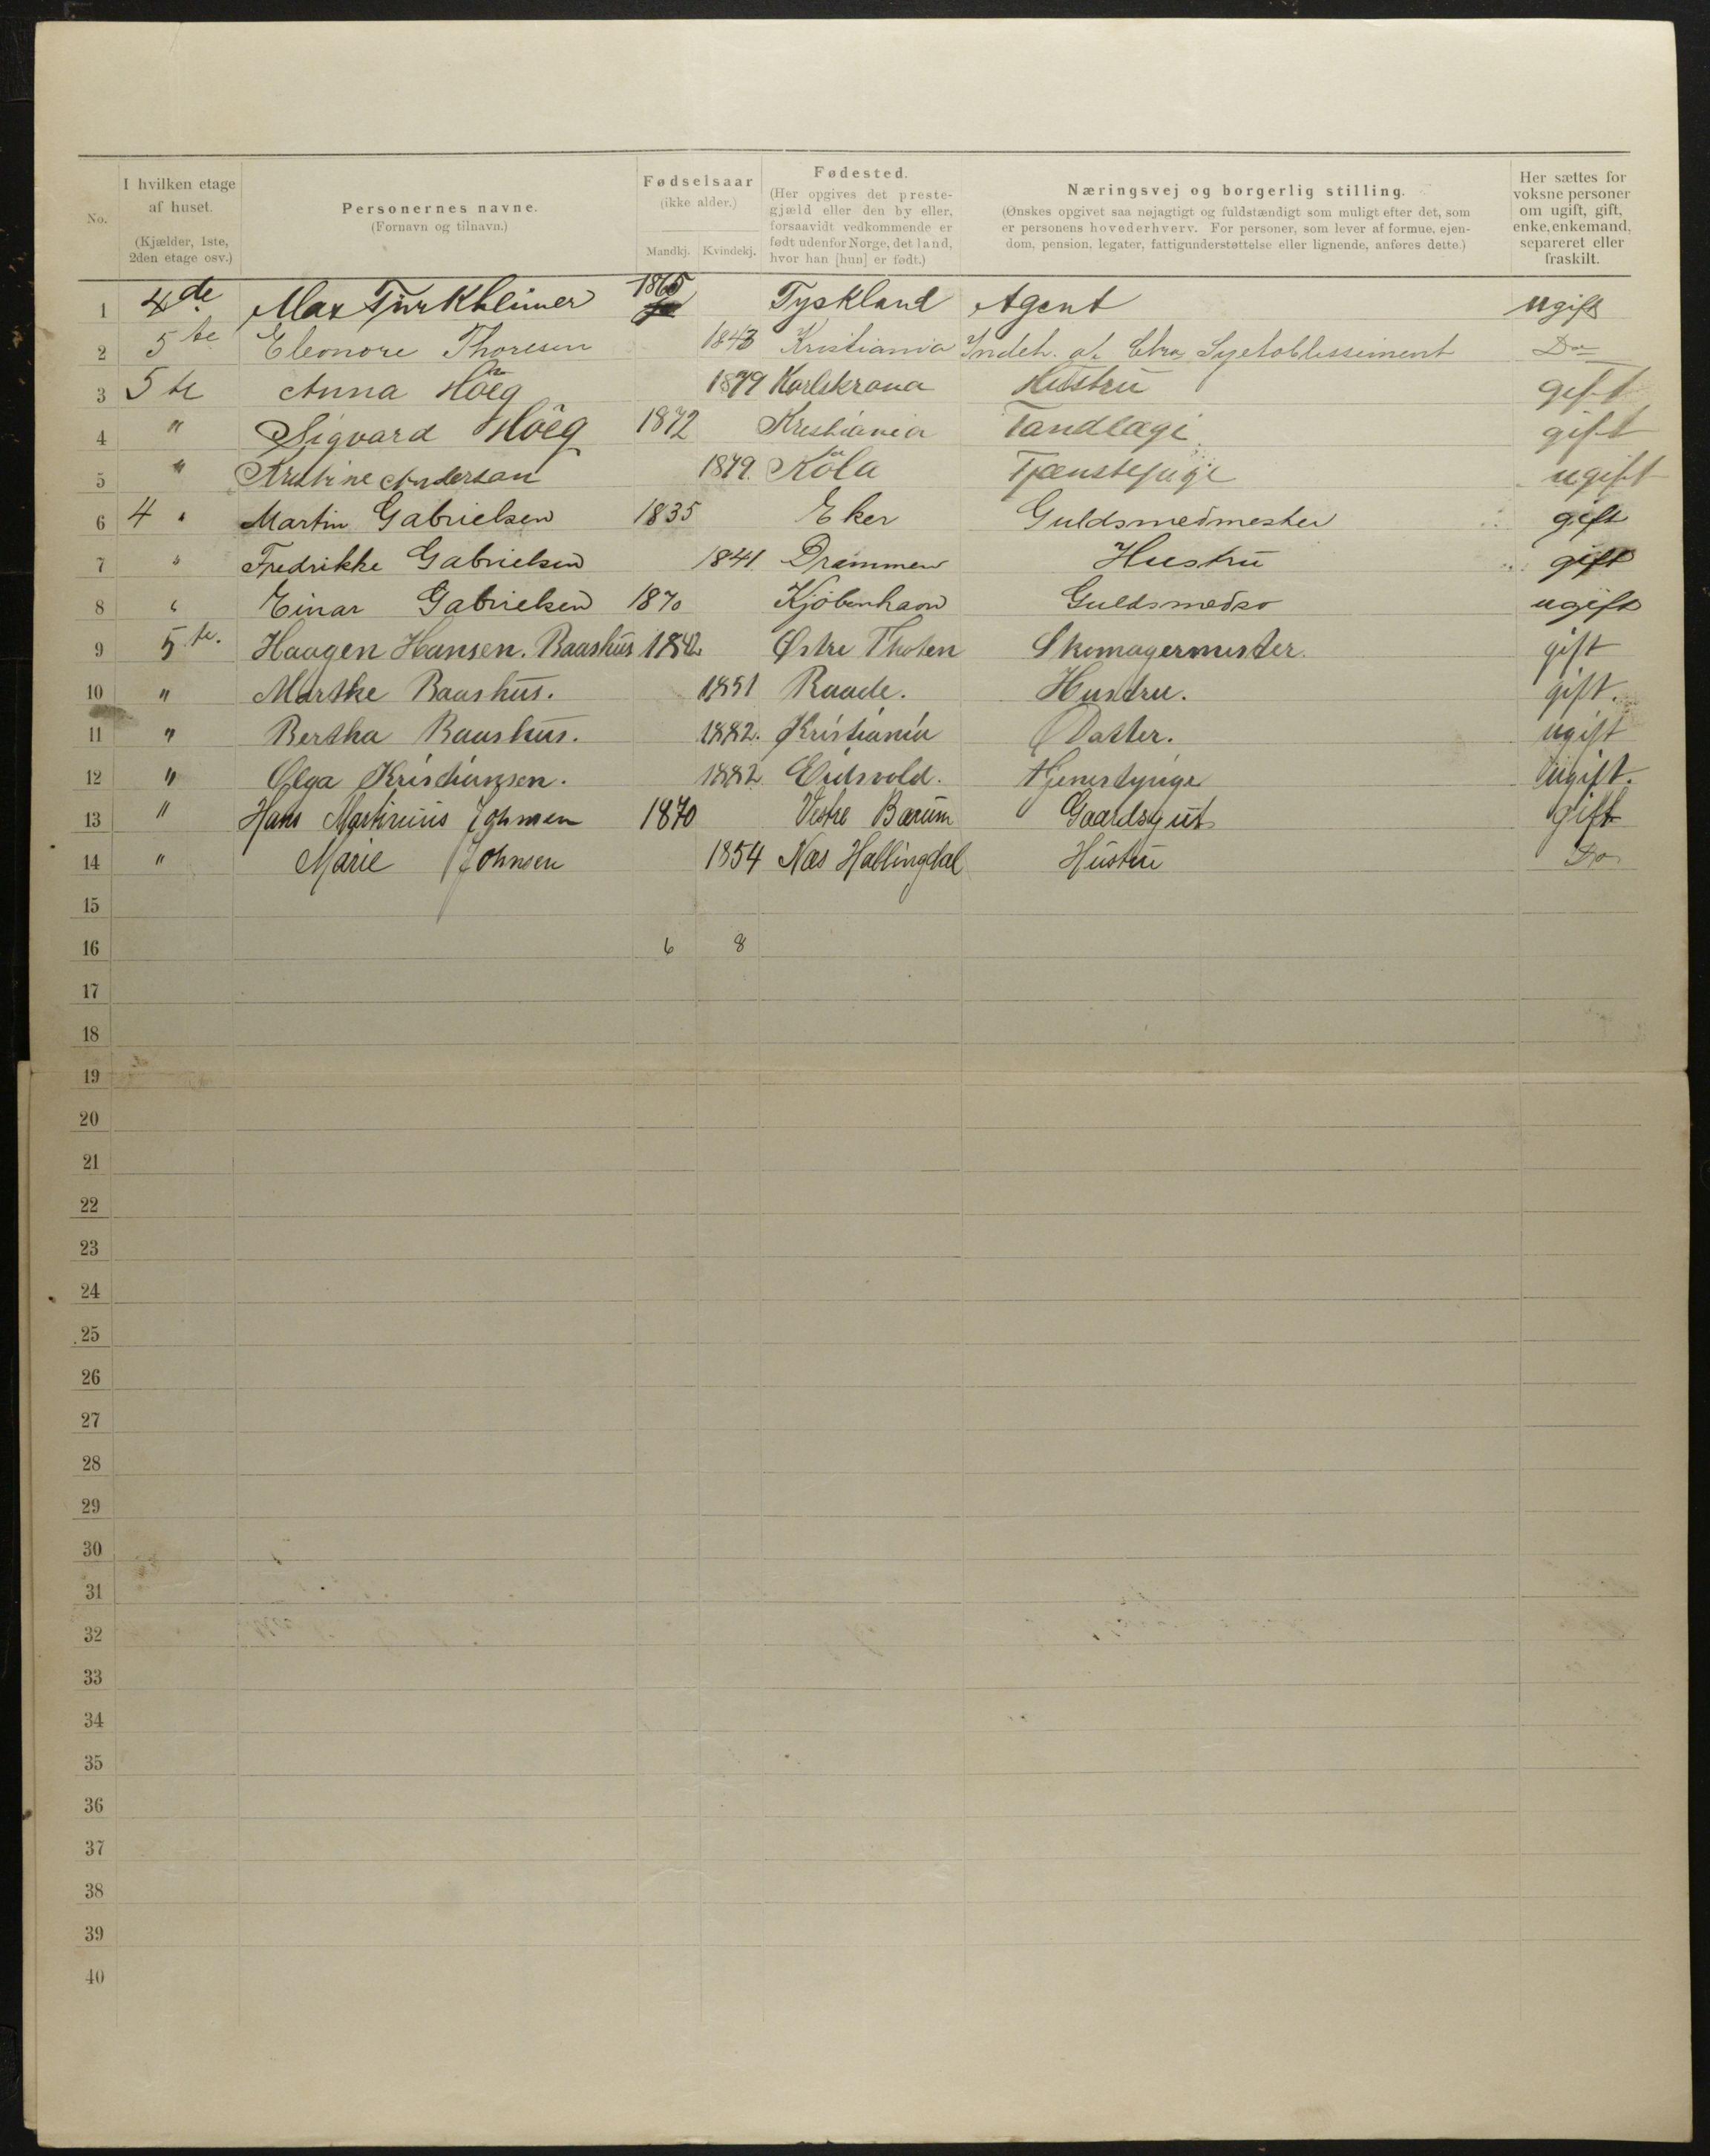 No.
I hvilken etage af huset. (Kjælder, 1ste, 2den etage osv.)
Personernes navne. (Fornavn og tilnavn.)
Fødselsaar (ikke alder.) Mandkj. Kvindekj.
Fødested. (Her opgives det prestegjæld eller den by eller, forsaavidt vedkommende er født udenfor Norge, det land, hvor han [hun] er født.)
Næringsvej og borgerlig stilling. (Ønskes opgivet saa nøjagtigt og fuldstændigt som muligt efter det, som er personens hovederhverv. For personer, som lever af formue, ejendom, pension, legater, fattigunderstøttelse eller lignende, anføres dette.)
Her sættes for voksne personer om ugift, gift, enke, enkemand, separeret eller fraskilt.
1 4de Max Türkheimer 1865 Tyskland Agent ugift
2 5te Eleonore Thoresen 1843 Kristiania Indeh. af Chra Syetablissiment Do
3 5te Anna Höeg 1879 Karlskrona Hustru gift
4 " Sigvard Höeg 1872 Kristiania Tandlæge gift
5 " Kristine Anderson 1879. Köla Tjænstepige ugift
6 4 " Martin Gabrielsen 1835 Eker Guldsmedmester gift
7 " Fredrikke Gabrielsen 1841 Drammen Hustru gift
8 " Einar Gabrielsen 1870 Kjöbenhavn Guldsmedsv ugift
9 5te. Haagen Hansen. Baashus 1842 Østre Thoten Skomagermester. gift
10 " Marthe Baashus. 1851 Raade. Hustru. gift.
11 " Bertha Baashus. 1882. Kristiania Datter. ugift
12 " Olga Kristiansen. 1882 Eidsvold. tjenestpige ugift.
13 " Hans Martinius Johnsen 1870 Vestre Bærum Gaardsgut gift
14 " Marie Johnsen 1854 Næs Hallingdal Hustru Do
15
16 6 8
17
18
19
20
21
22
23
24
25
26
27
28
29
30
31
32
33
34
35
36
37
38
39
40